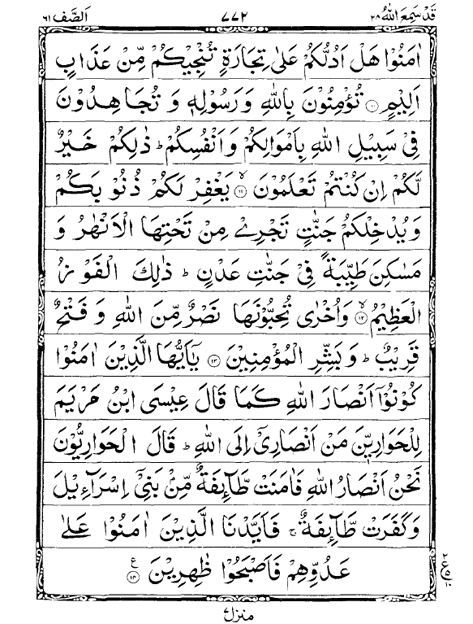 قَدْ سَمِعَ اللّٰهُ ٢٨ ٧٧٢ اَلصَّفّ ٦١
اٰمَنُوْا هَلْ اَدُلُّكُمْ عَلٰى تِجَارَةٍ تُنْجِيْكُمْ مِّنْ عَذَابٍ
اَلِيْمٍ ۝١٠ تُؤْمِنُوْنَ بِاللّٰهِ وَرَسُوْلِهٖ وَ تُجَاهِدُوْنَ
فِىْ سَبِيْلِ اللّٰهِ بِاَمْوَالِكُمْ وَاَنْفُسِكُمْ ؕ ذٰلِكُمْ خَيْرٌ
لَّكُمْ اِنْ كُنْتُمْ تَعْلَمُوْنَ ۝١١ۙ يَغْفِرْ لَكُمْ ذُنُوْبَكُمْ
وَيُدْخِلْكُمْ جَنّٰتٍ تَجْرِىْ مِنْ تَحْتِهَا الْاَنْهٰرُ وَ
مَسٰكِنَ طَيِّبَةً فِىْ جَنّٰتِ عَدْنٍ ؕ ذٰلِكَ الْفَوْزُ
الْعَظِيْمُ ۝١٢ۙ وَاُخْرٰى تُحِبُّوْنَهَا نَصْرٌ مِّنَ اللّٰهِ وَ فَتْحٌ
قَرِيْبٌ ؕ وَبَشِّرِ الْمُؤْمِنِيْنَ ۝١٣ يٰۤاَيُّهَا الَّذِيْنَ اٰمَنُوْا
كُوْنُوْۤا اَنْصَارَ اللّٰهِ كَمَا قَالَ عِيْسَى ابْنُ مَرْيَمَ
لِلْحَوَارِيّٖنَ مَنْ اَنْصَارِىْۤ اِلَى اللّٰهِ ؕ قَالَ الْحَوَارِيُّوْنَ
نَحْنُ اَنْصَارُ اللّٰهِ فَاٰمَنَتْ طَّآئِفَةٌ مِّنْۢ بَنِىْۤ اِسْرَآءِيْلَ
وَكَفَرَتْ طَّآئِفَةٌ ۚ فَاَيَّدْنَا الَّذِيْنَ اٰمَنُوْا عَلٰى
عَدُوِّهِمْ فَاَصْبَحُوْا ظٰهِرِيْنَ ۝١٤ ع
٢ ع ٥ ١٠
منزل ٧